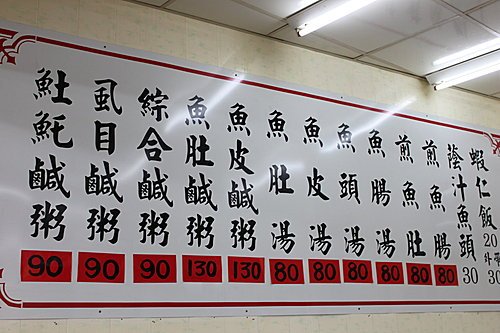 魠魠鹹粥 90
虱目鹹粥 90
綜合鹹粥 90
魚肚鹹粥 130
魚皮鹹粥 130
魚肚湯 80
魚皮湯 80
魚頭湯 80
魚腸湯 80
煎魚肚 80
煎魚腸 80
蔭汁魚頭 30
蝦仁飯 20
外帶 30